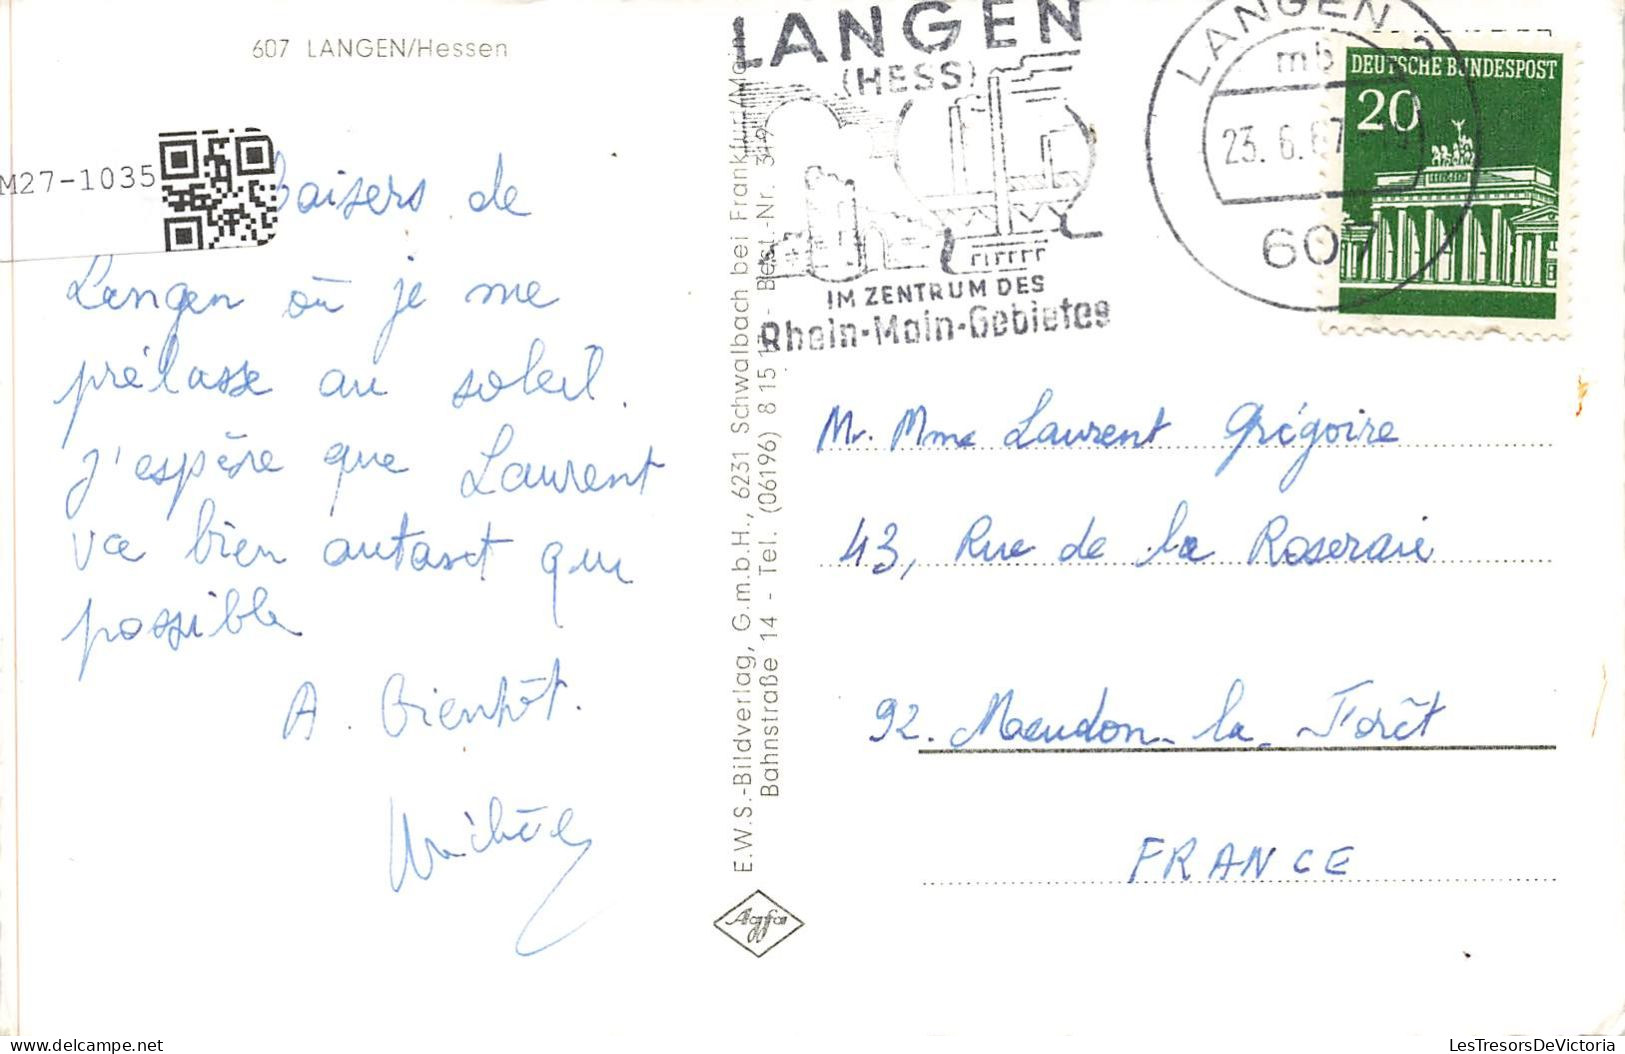 607 LANGEN/Hessen
M27-1035
baisers de
Langen où je me
prélasse au soleil.
J'espère que Laurent
va bien autant que
possible
A Bientôt.
Michèle
E.W.S.-Bildverlag, G.m.b.H., 6231 Schwalbach bei Frankfurt/Main
Bahnstraße 14 - Tel. (06196) 8 15 17 - Best.-Nr. 319
Agfa
LANGEN
(HESS)
IM ZENTRUM DES
Rhein-Main-Gebietes
LANGEN
mb
23.6.67
607
DEUTSCHE BUNDESPOST
20
Mr. Mme Laurent Grégoire
43, Rue de la Roseraie
92. Meudon-la-Forêt
FRANCE
LesTresorsDeVictoria